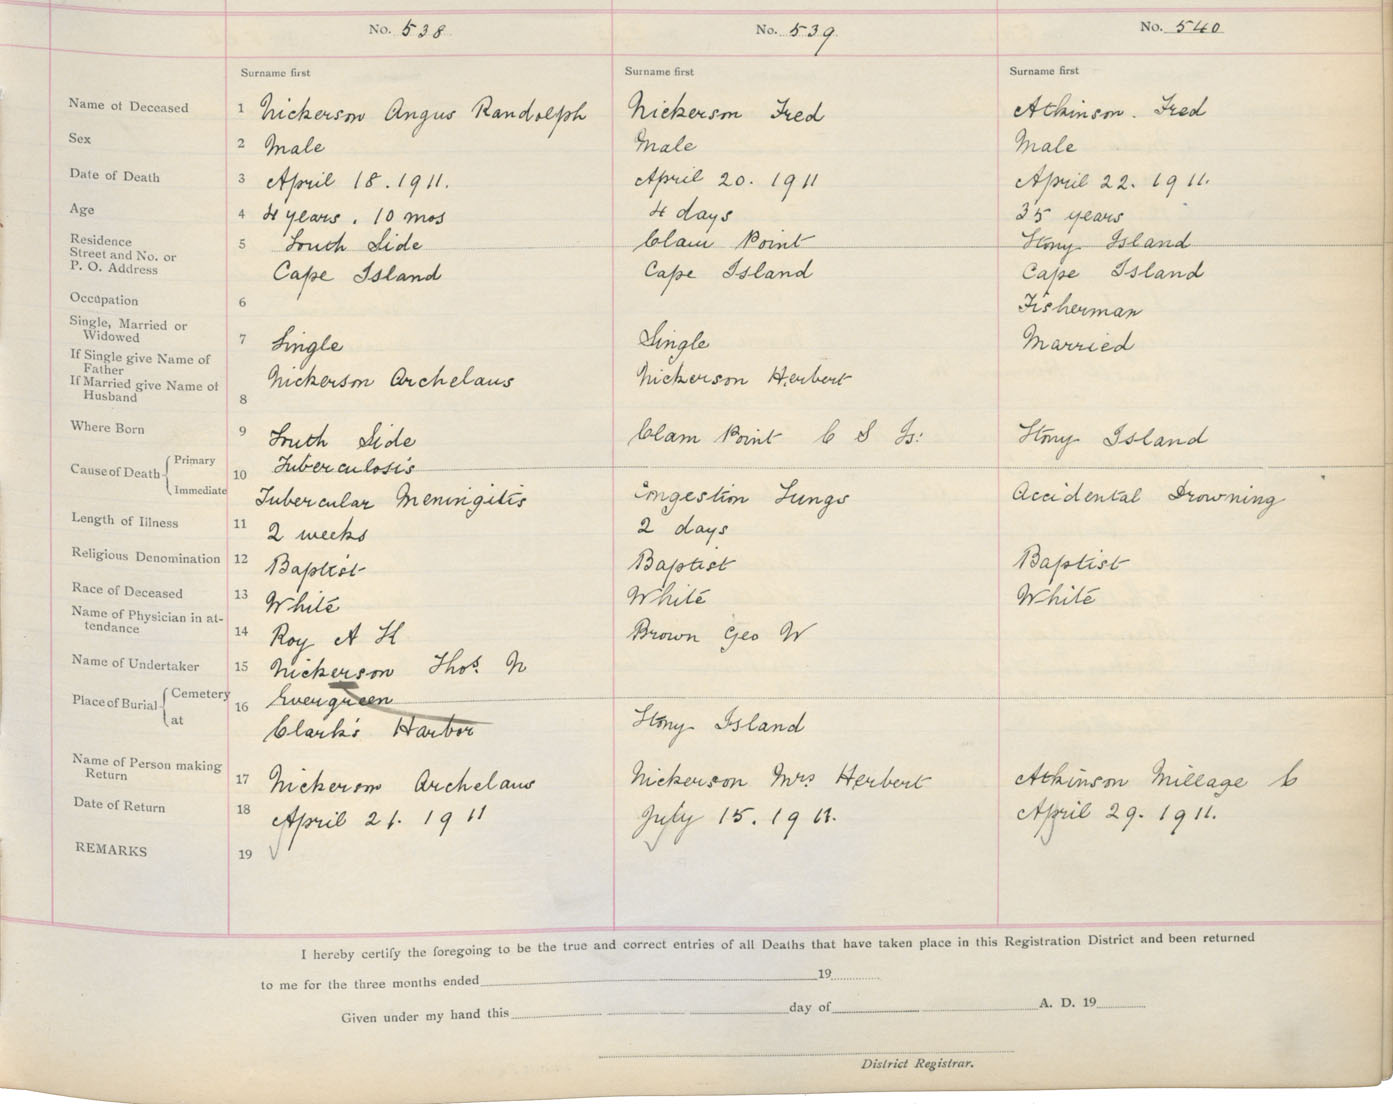 No. 538 No. 539 No. 540
Surname first Surname first Surname first
Name of Deceased 1 Nickerson Angus Randolph Nickerson Fred Atkinson. Fred
Sex 2 Male Male Male
Date of Death 3 April 18. 1911. April 20. 1911 April 22. 1911.
Age 4 4 years. 10 mos 4 days 35 years
Residence 5 South Side Clam Point Stony Island
Street and No. or
P. O. Address Cape Island Cape Island Cape Island
Occupation 6 Fisherman
Single, Married or
Widowed 7 Single Single Married
If Single give Name of
Father Nickerson Archelaus Nickerson Herbert
If Married give Name of
Husband 8
Where Born 9 South Side Clam Point C S Is: Stony Island
Cause of Death 10 Primary Tuberculosis
Immediate Tubercular Meningitis Congestion Lungs Accidental Drowning
Length of Illness 11 2 weeks 2 days
Religious Denomination 12 Baptist Baptist Baptist
Race of Deceased 13 White White White
Name of Physician in at-
tendance 14 Roy A H Brown Geo W
Name of Undertaker 15 Nickerson Thos. N
Place of Burial 16 Cemetery Evergreen
at Clark's Harbor Stony Island
Name of Person making
Return 17 Nickerson Archelaus Nickerson Mrs Herbert Atkinson Millage C
Date of Return 18 April 21. 1911 July 15. 1911. April 29. 1911.
REMARKS 19
I hereby certify the foregoing to be the true and correct entries of all Deaths that have taken place in this Registration District and been returned
to me for the three months ended 19
Given under my hand this day of A. D. 19
District Registrar.